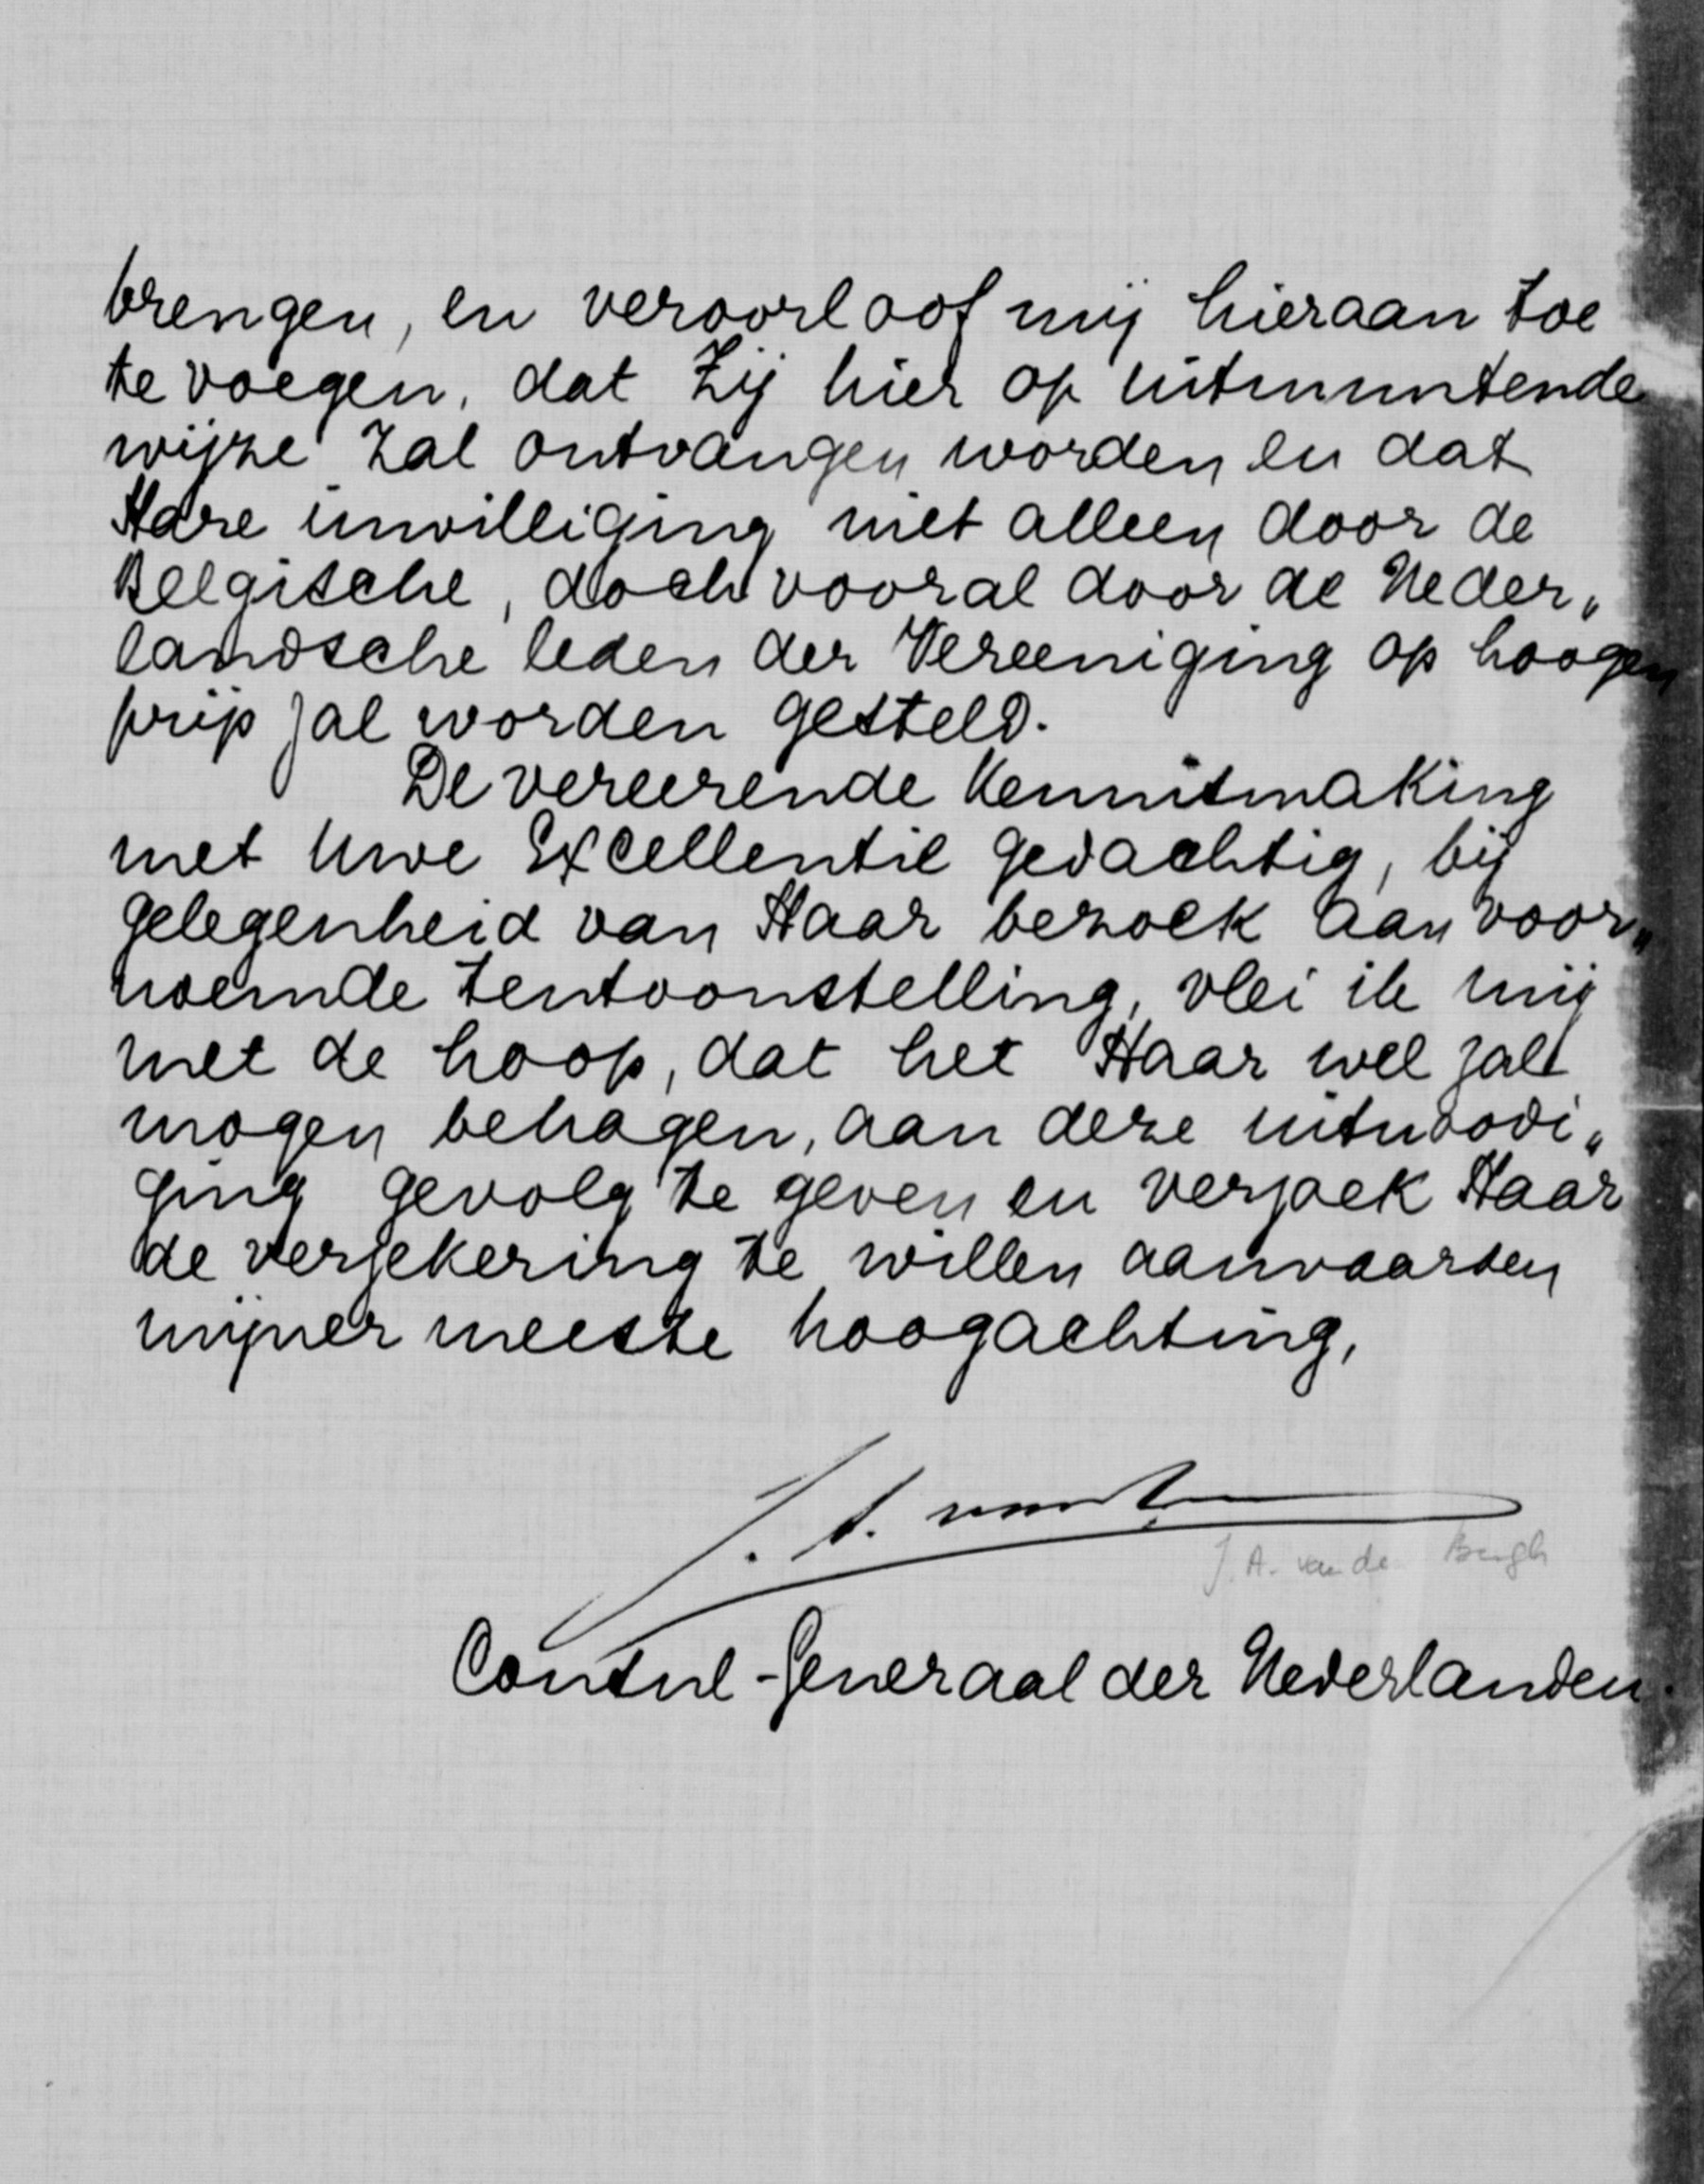 brengen, en veroorloof mij hieraan toe
te voegen, dat Zij hier op uitmuntende
wijze zal ontvangen worden en dat
Hare inwilliging niet alleen door de
Belgische, doch vooral door de Neder„
landsche leden der Vereeniging op hoogen
prijs zal worden gesteld.
De vereerende kennismaking
met Uwe Excellentie gedachtig, bij
gelegenheid van Haar bezoek aan voor„
noemde tentoonstelling, vlei ik mij
met de hoop, dat het Haar wel zal
mogen behagen, aan deze uitnoodi„
ging gevolg te geven en verzoek Haar
de verzekering te willen aanvaarden
mijner meeste hoogachting,
J. A. van de Bergh
Consul-Generaal der Nederlanden.